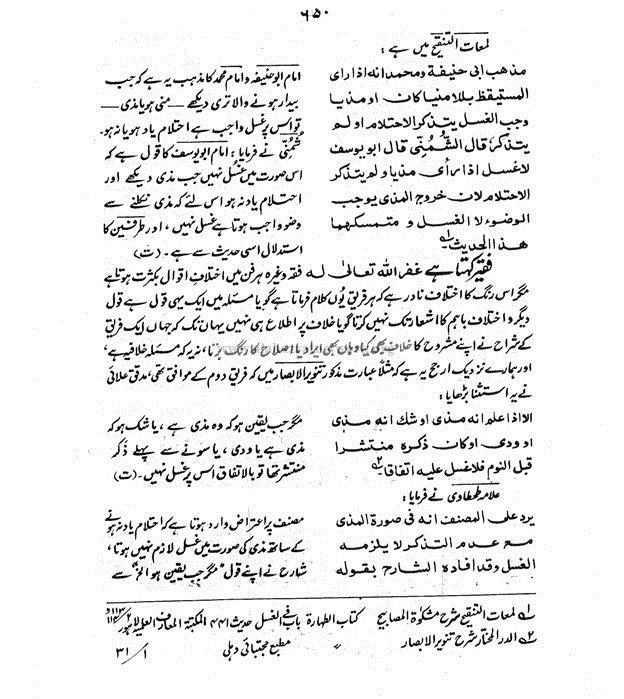 ۶۵۰
لمعات التنقیح میں ہے :
مذھب ابی حنیفة ومحمد انه اذا رأی
المستیقظ بللا منیا کان او مذیا
وجب الغسل یتذکر الاحتلام او لم
یتذکر، قال الشُّمُنِّی قال ابو یوسف
لاغسل اذا رأی مذیا ولم یتذکر
الاحتلام لان خروج المذی یوجب
الوضوء لا الغسل و متمسکھما
ھذا الحدیث۱؎
امام ابوحنیفہ و امام محمد کا مذہب یہ ہے کہ جب
بیدار ہونے والا تری دیکھے ــ منی ہو یا مذی ــ
تو اس پر غسل واجب ہے احتلام یاد ہو یا نہ ہو۔
شُمُنّی نے فرمایا : امام ابویوسف کا قول ہے کہ
اس صورت میں غسل نہیں جب مذی دیکھے اور
احتلام یاد نہ ہو اس لئے کہ مذی نکلنے سے
وضو واجب ہوتا ہے غسل نہیں ، اور طرفین کا
استدلال اسی حدیث سے ہے ۔ (ت)
فقیر کہتا ہے غفر اللہ تعالیٰ لہ فقہ وغیرہ ہر فن میں اختلافِ اقوال بکثرت ہوتا ہے
مگر اس رنگ کا اختلاف نادر ہے کہ ہر فریق یوں کلام فرماتا ہے گویا مسئلہ میں ایک یہی قول ہے قول
دیگر و اختلاف باہم کا اشعار تک نہیں کرتا گویا خلاف پر اطلاع ہی نہیں یہاں تک کہ جہاں ایک فریق
کے شراح نے اپنے مشروح کا خلاف بھی کیا وہاں بھی ایراد یا اصلاح کا رنگ برتا ، نہ یہ کہ مسئلہ خلافیہ ہے،
اور ہمارے نزدیک ارجح یہ ہے کہ مثلاً عبارت مذکور تنویر الابصار میں کہ فریق دوم کے موافق تھی، مدقق علائی
نے یہ استثنا بڑھایا :
الا اذا علم انه مذی او شك انه مذی
او ودی او کان ذکرہ منتشرا
قبل النوم فلا غسل علیه اتفاقا۲؎
مگر جب یقین ہو کہ وہ مذی ہے ، یا شک ہو کہ
مذی ہے یا ودی ، یا سونے سے پہلے ذَکَر
منتشر تھا تو بالاتفاق اس پر غسل نہیں ۔ (ت)
علامہ طحطاوی نے فرمایا :
یرد علی المصنف انه فی صورة المذی
مع عدم التذکر لا یلزمه
الغسل وقد افادہ الشارح بقوله
مصنف پر اعتراض وارد ہوتا ہے کہ احتلام یاد نہ ہونے
کے ساتھ مذی کی صورت میں غسل لازم نہیں ہوتا ،
شارح نے اپنے قول ”مگر جب یقین ہو الخ“ سے
۱؎ لمعات التنقیح شرح مشکوٰۃ المصابیح کتاب الطہارۃ باب فی الغسل حدیث ۴۴۱ المکتبۃ المعارف العلمیہ لاہور ۲/ ۱۱۳ و ۱۱۴
۲؎ الدر المختار شرح تنویر الابصار ” مطبع مجتبائی دہلی ۱/ ۳۱